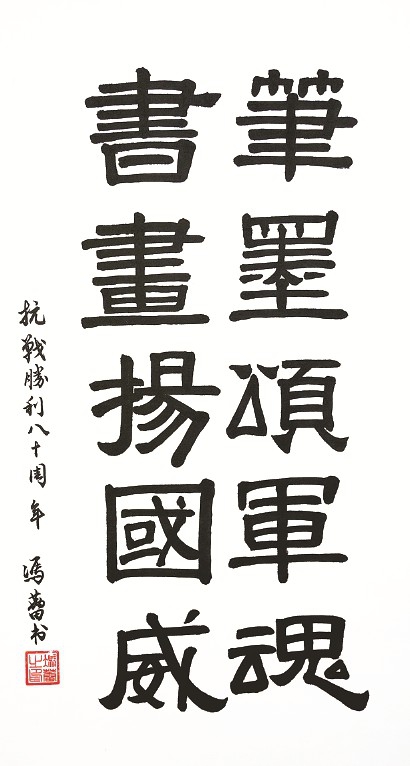 筆墨頌軍魂
書畫揚國威
抗戰勝利八十周年 馮蕾书